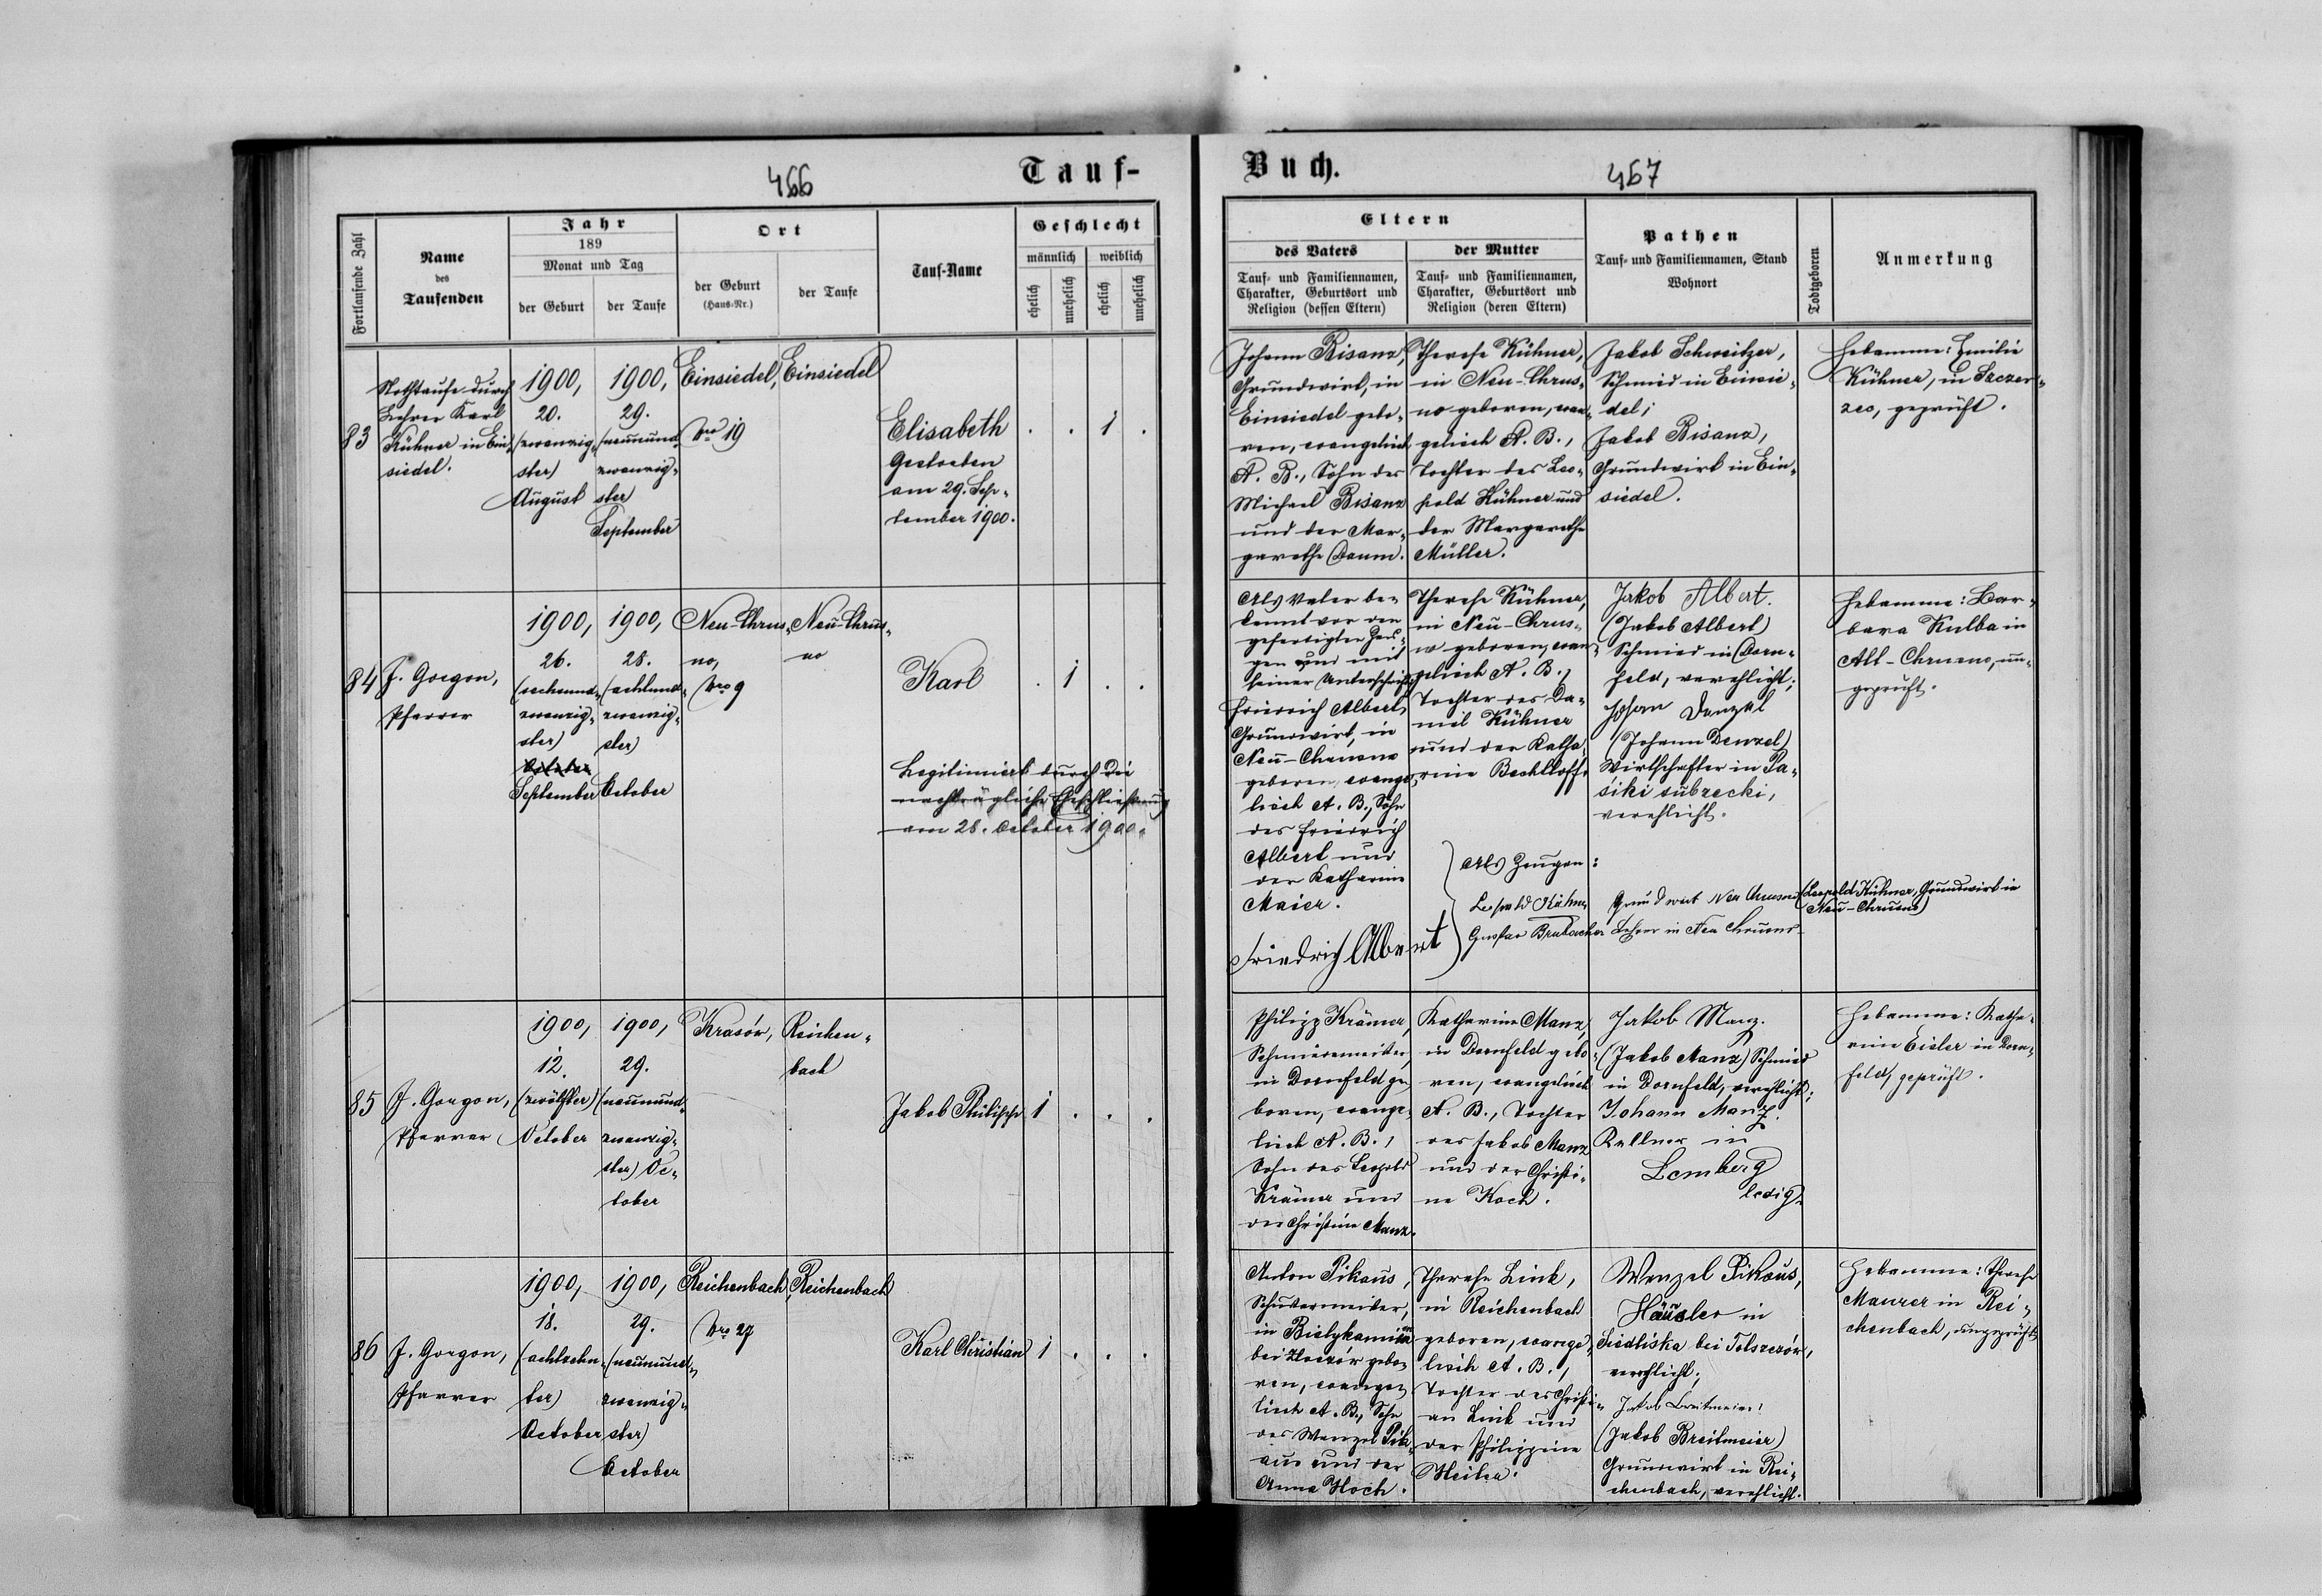 466
Tauf-
Fortlaufende Zahl
Name
des
Taufenden
Jahr
189
Monat und Tag
der Geburt
der Taufe
Ort
der Geburt
(Haus-Nr.)
der Taufe
Tauf-Name
Geschlecht
männlich
weiblich
ehelich
unehelich
ehelich
unehelich
83
Nothtaufe durch
Lehrer Karl
Kühner in Ein-
siedel.
1900,
20.
(zwanzig-
ster)
August
1900,
29.
(neunund-
zwanzig-
ster)
September
Einsiedel,
Nro 19
Einsiedel
Elisabeth
Gestorben
am 29. Sep-
tember 1900.
. . 1 .
84
J. Gorgon,
Pfarrer
1900,
26.
(sechsund-
zwanzig-
ster)
October
September
1900,
28.
(achtund-
zwanzig-
ster)
October
Neu-Chrus-
no,
Nro 9
Neu-Chrus-
no
Karl
. 1 . .
Legitimiert durch die
nachträgliche Eheschließung
am 28. October 1900.
85
J. Gorgon,
Pfarrer
1900,
12.
(zwölfter)
October
1900,
29.
(neunund-
zwanzig-
ster) Oc-
tober
Krasów,
Reichen-
bach
Jakob Philipp
1 . . .
86
J. Gorgon,
Pfarrer
1900,
18.
(achtzehn-
ter)
October
1900,
29.
(neunund-
zwanzig-
ster)
October
Reichenbach,
Nro 27
Reichenbach
Karl Christian
1 . . .
Buch.
467
Eltern
des Vaters
Tauf- und Familiennamen,
Charakter, Geburtsort und
Religion (dessen Eltern)
der Mutter
Tauf- und Familiennamen,
Charakter, Geburtsort und
Religion (deren Eltern)
Pathen
Tauf- und Familiennamen, Stand
Wohnort
Todtgeboren
Anmerkung
Johann Bisanz,
Grundwirt, in
Einsiedel gebo-
ren, evangelisch
A. B., Sohn des
Michael Bisanz
und der Mar-
garethe Daum.
Therese Kühner,
in Neu-Chrus-
no geboren, evan-
gelisch A. B.,
Tochter des Leo-
pold Kühner und
der Margarethe
Müller.
Jakob Schweitzer,
Schmid in Einsie-
del;
Jakob Bisanz,
Grundwirt in Ein-
siedel.
Hebamme: Emilie
Kühner, in Szczer-
zec, geprüft.
Als Vater be-
kennt vor den
gefertigten Zeu-
gen und mit
seiner Unterschrift
Friedrich Albert,
Grundwirt, in
Neu-Chrusno
geboren, evange-
lisch A. B., Sohn
des Friedrich
Albert und
der Katharine
Maier.
Friedrich Albert
Therese Kühner,
in Neu-Chrus-
no geboren, evan-
gelisch A. B.,
Tochter des Da-
niel Kühner
und der Katha-
rine Bechtloff.
Jakob Albert.
(Jakob Albert)
Schmied in Dorn-
feld, verehlicht;
Johan Denzel
(Johann Denzel)
Wirthschafter in Pa-
siki subrecki,
verehlicht.
Hebamme: Bar-
bara Kulba in
Alt-Chrusno, un-
geprüft.
als Zeugen:
Leopold Kühner Grundwirt Neu Chrusno (Leopold Kühner, Grundwirt in
Neu-Chrusno)
Gustav Brubacher Lehrer in Neu Chrusno
Philipp Krämer,
Schmiedemeister,
in Dornfeld ge-
boren, evange-
lisch A. B.,
Sohn des Leopold
Krämer und
der Christine Manz.
Katharina Manz,
in Dornfeld gebo-
ren, evangelisch
A. B., Tochter
des Jakob Manz
und der Christi-
ne Koch.
Jakob Manz.
(Jakob Manz) Schmied
in Dornfeld, verehlicht;
Johann Manz.
Kellner in
Lemberg
ledig.
Hebamme: Katha-
rine Eisler in Dorn-
feld, geprüft.
Anton Pikaus,
Schustermeister,
in Bialykamien
bei Zloczów gebo-
ren, evange-
lisch A. B., Sohn
des Wenzel Pik-
aus und der
Anna Hoch.
Therese Link,
in Reichenbach
geboren, evange-
lisch A. B.,
Tochter des Christi-
an Link und
der Philippine
Wenzel Pikaus,
Häusler in
Siedliska bei Tolszczów,
verehlicht;
Jakob Breitmeier
(Jakob Breitmeier)
Grundwirt in Rei-
chenbach, verehlicht.
Hebamme: Therese
Maurer in Rei-
chenbach, ungeprüft